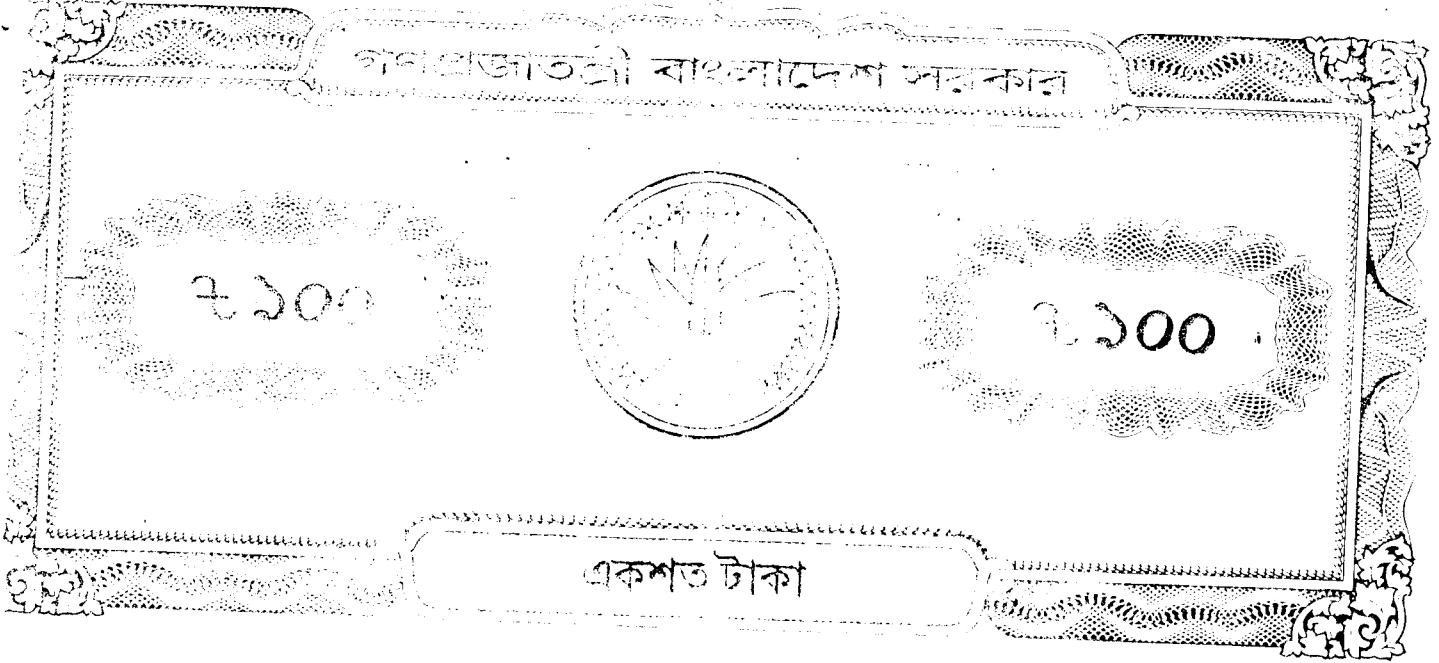 গণপ্রজাতন্ত্রী বাংলাদেশ সরকার
৳ ১০০
৳ ১০০
একশত টাকা